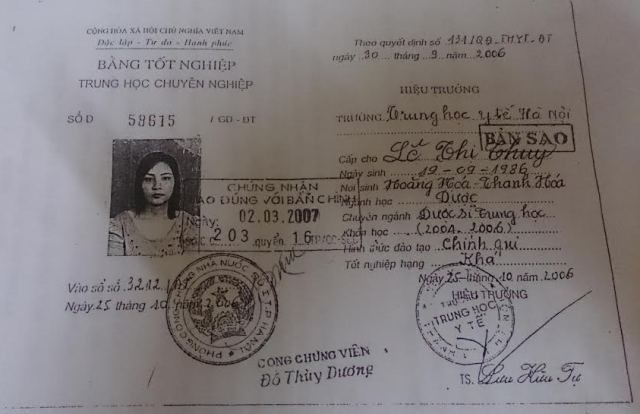 CỘNG HÒA XÃ HỘI CHỦ NGHĨA VIỆT NAM
Độc lập - Tự do - Hạnh phúc
BẰNG TỐT NGHIỆP
TRUNG HỌC CHUYÊN NGHIỆP
SỐ D 59615 / GD - ĐT
CHỨNG NHẬN
SAO ĐÚNG VỚI BẢN CHÍNH
Ngày: 02.03.2007
203 quyển 16 TP/CC-SCC
Vào sổ số 3212
Ngày 25 tháng 10 năm 2006
PHÒNG CÔNG CHỨNG NHÀ NƯỚC T.P HÀ NỘI
CÔNG CHỨNG VIÊN
Đỗ Thùy Dương
Theo quyết định số 131/QĐ-THYT-ĐT
ngày 30 tháng 9 năm 2006
HIỆU TRƯỞNG
TRƯỜNG Trung học y tế Hà Nội
BẢN SAO
Cấp cho Lê Thị Thủy
Ngày sinh 19-09-1986
Nơi sinh Hoằng Hóa - Thanh Hóa
Ngành học Dược
Chuyên ngành Dược sĩ Trung học
Khóa học (2004-2006)
Hình thức đào tạo Chính qui
Tốt nghiệp hạng Khá
Ngày 25 tháng 10 năm 2006
HIỆU TRƯỞNG
TRUNG HỌC
Y TẾ
TS. Lưu Hữu Tự